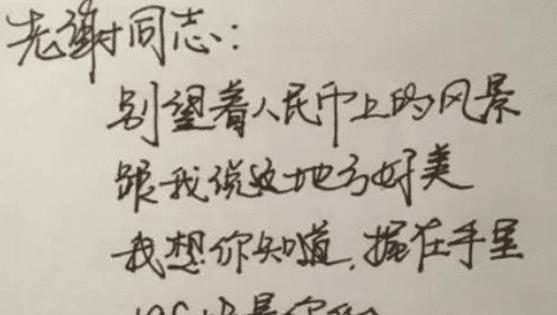 老谢同志:
别望着人民币上的风景
跟我说这地方好美
我想你知道,握在手里